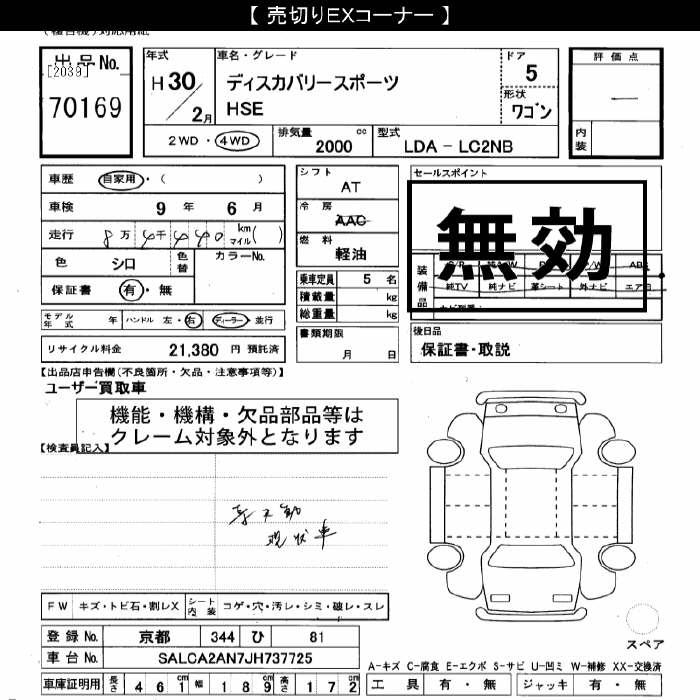 【 売切りEXコーナー 】
出品No.
[2039]
70169
年式
H30/2月
車名・グレード
ディスカバリースポーツ
HSE
ドア
5
形状
ワゴン
評価点
―
内装
2WD・4WD
排気量
2000 cc
型式
LDA - LC2NB
車歴 自家用・( )
車検 9年 6月
走行 km マイル( )
色 シロ
色替
カラーNo.
保証書 有・無
シフト
AT
冷房
AAC
燃料
軽油
乗車定員 5 名
積載量 kg
総重量 kg
書類期限
月 日
セールスポイント
無効
装備品
純TV 純ナビ 革シート 外ナビ エアB
モデル年式 年 ハンドル 左・右 ディーラー・並行
リサイクル料金 21,380 円 預託済
後日品
保証書・取説
【出品店申告欄(不良箇所・欠品・注意事項等)】
ユーザー買取車
機能・機構・欠品部品等は
クレーム対象外となります
【検査員記入】
不動
現状車
FW キズ・トビ石・割レX シート内装 コゲ・穴・汚レ・シミ・破レ・スレ
登録No. 京都 344 ひ 81
車台No. SALCA2AN7JH737725
車庫証明用 長さ 461cm 幅 189cm 高さ 172cm
スペア
A-キズ C-腐食 E-エクボ S-サビ U-凹ミ W-補修 XX-交換済
工具 有・無 ジャッキ 有・無